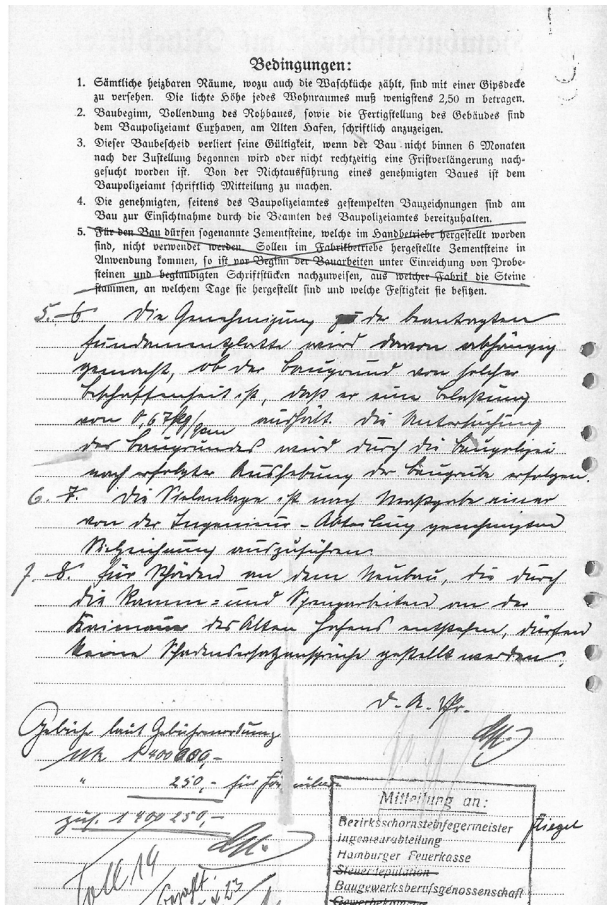 Bedingungen:
1. Sämtliche heizbaren Räume, wozu auch die Waschküche zählt, sind mit einer Gipsdecke
zu versehen. Die lichte Höhe jedes Wohnraumes muß wenigstens 2,50 m betragen.
2. Baubeginn, Vollendung des Rohbaues, sowie die Fertigstellung des Gebäudes sind
dem Baupolizeiamt Cuxhaven, am Alten Hafen, schriftlich anzuzeigen.
3. Dieser Baubescheid verliert seine Gültigkeit, wenn der Bau nicht binnen 6 Monaten
nach der Zustellung begonnen wird oder nicht rechtzeitig eine Fristverlängerung nach-
gesucht worden ist. Von der Nichtausführung eines genehmigten Baues ist dem
Baupolizeiamt schriftlich Mitteilung zu machen.
4. Die genehmigten, seitens des Baupolizeiamtes gestempelten Bauzeichnungen sind am
Bau zur Einsichtnahme durch die Beamten des Baupolizeiamtes bereitzuhalten.
5. Für den Bau dürfen sogenannte Zementsteine, welche im Handbetriebe hergestellt worden
sind, nicht verwendet werden. Sollen im Fabrikbetriebe hergestellte Zementsteine in
Anwendung kommen, so ist vor Beginn der Bauarbeiten unter Einreichung von Probe-
steinen und beglaubigten Schriftstücken nachzuweisen, aus welcher Fabrik die Steine
stammen, an welchem Tage sie hergestellt sind und welche Festigkeit sie besitzen.
5. 6 Die Genehmigung der beantragten
Fundamentplatte wird davon abhängig
gemacht, ob der Baugrund von solcher
Beschaffenheit ist, daß er eine Belastung
von 0,67 kg/qcm aushält. Die Untersuchung
des Baugrundes wird durch die Baupolizei
nach erfolgter Aushebung der Baugrube erfolgen.
6. 7. Die Sielanlage ist nach Maßgabe einer
von der Ingenieur-Abteilung genehmigten
Sielzeichnung auszuführen.
7. 8. Für Schäden an dem Neubau, die durch
die Ramm- und Sprengarbeiten an der
Kaimauer des Alten Hafens entstehen, dürfen
keine Schadensersatzansprüche gestellt werden.
Gebühr laut Gebührenordnung
Mk 1400000,-
" 250,- für
zus. 1400250,-
Mitteilung an:
Bezirksschornsteinfegermeister
Ingenieurabteilung
Hamburger Feuerkasse
Steuerdeputation
Baugewerksberufsgenossenschaft
Gewerbekammer